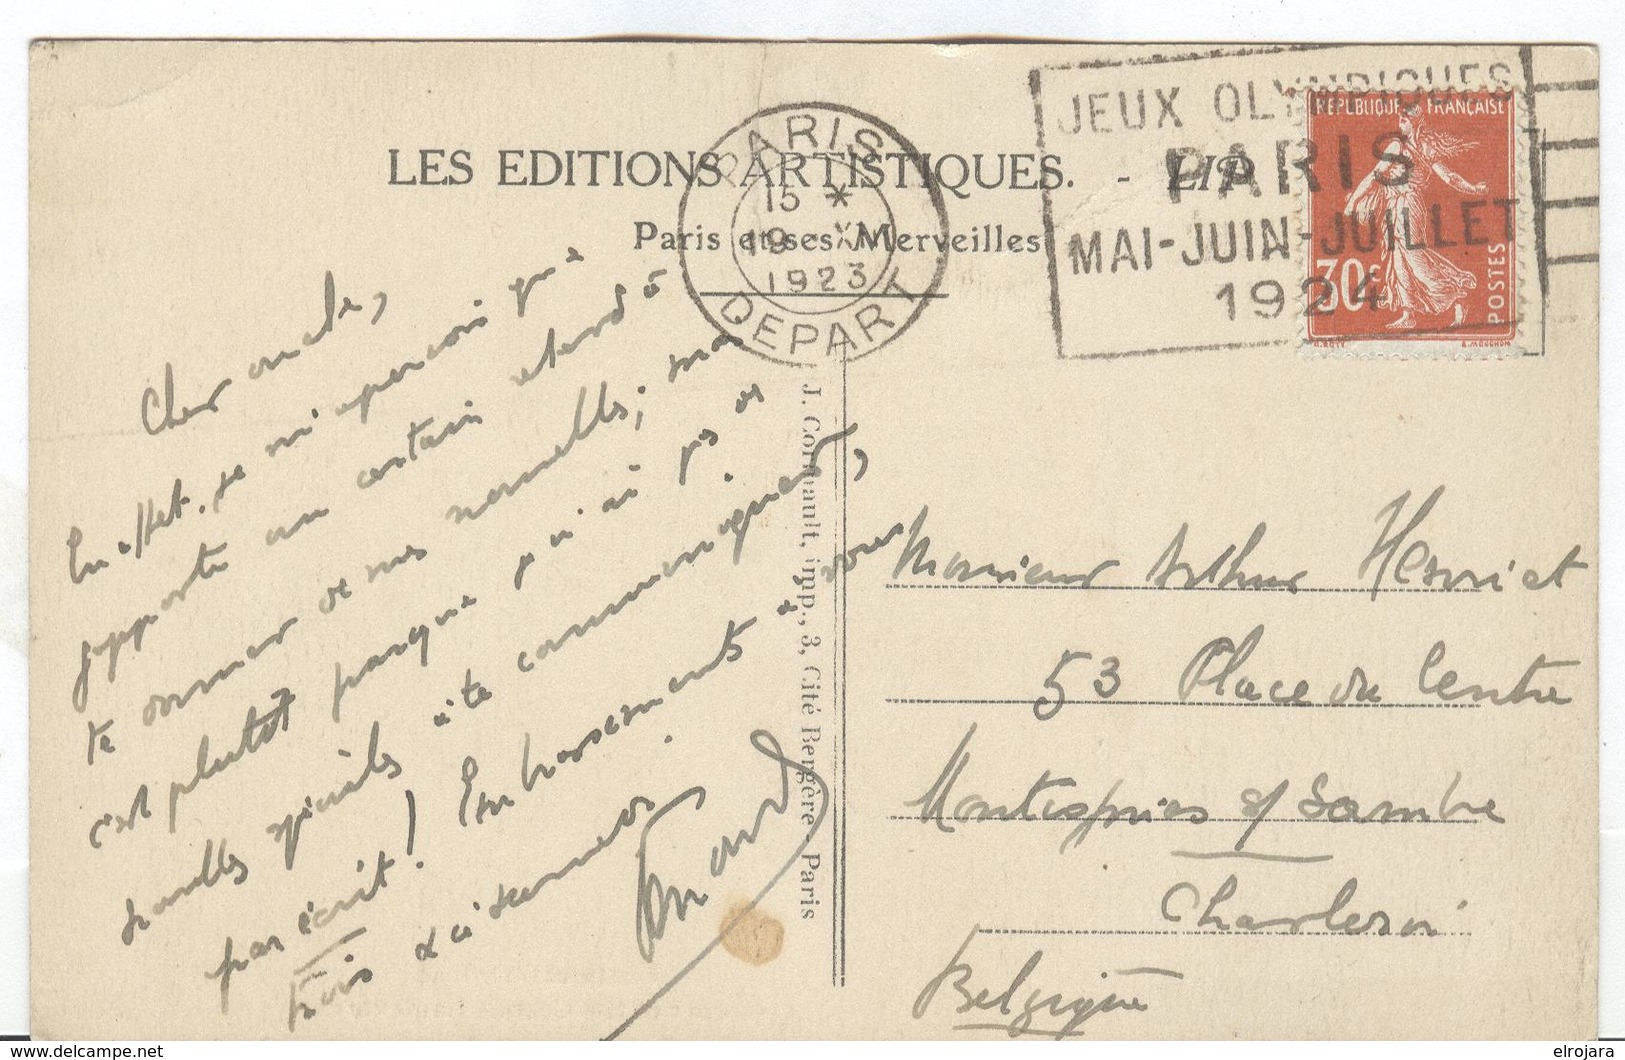 LES EDITIONS ARTISTIQUES. - LIP
Paris et ses Merveilles
PARIS
15 *
19 - X
1923
DEPART
JEUX OLYMPIQUES
PARIS
MAI-JUIN-JUILLET
1924
REPUBLIQUE FRANCAISE
30c
POSTES
O. ROTY
E. MOUCHON
J. Cormault, imp., 3, Cité Bergère - Paris
Cher oncle,
En effet, je m'aperçois que
j'apporte un certain retard à
te donner de mes nouvelles; mais
c'est plutôt parce que j'ai
nouvelles spéciales à te communiquer,
par écrit! Embrassements à vous
trois
Monsieur Arthur Henriet
53 Place du Centre
Montignies s/ Sambre
Charleroi
Belgique
delcampe.net
elrojara